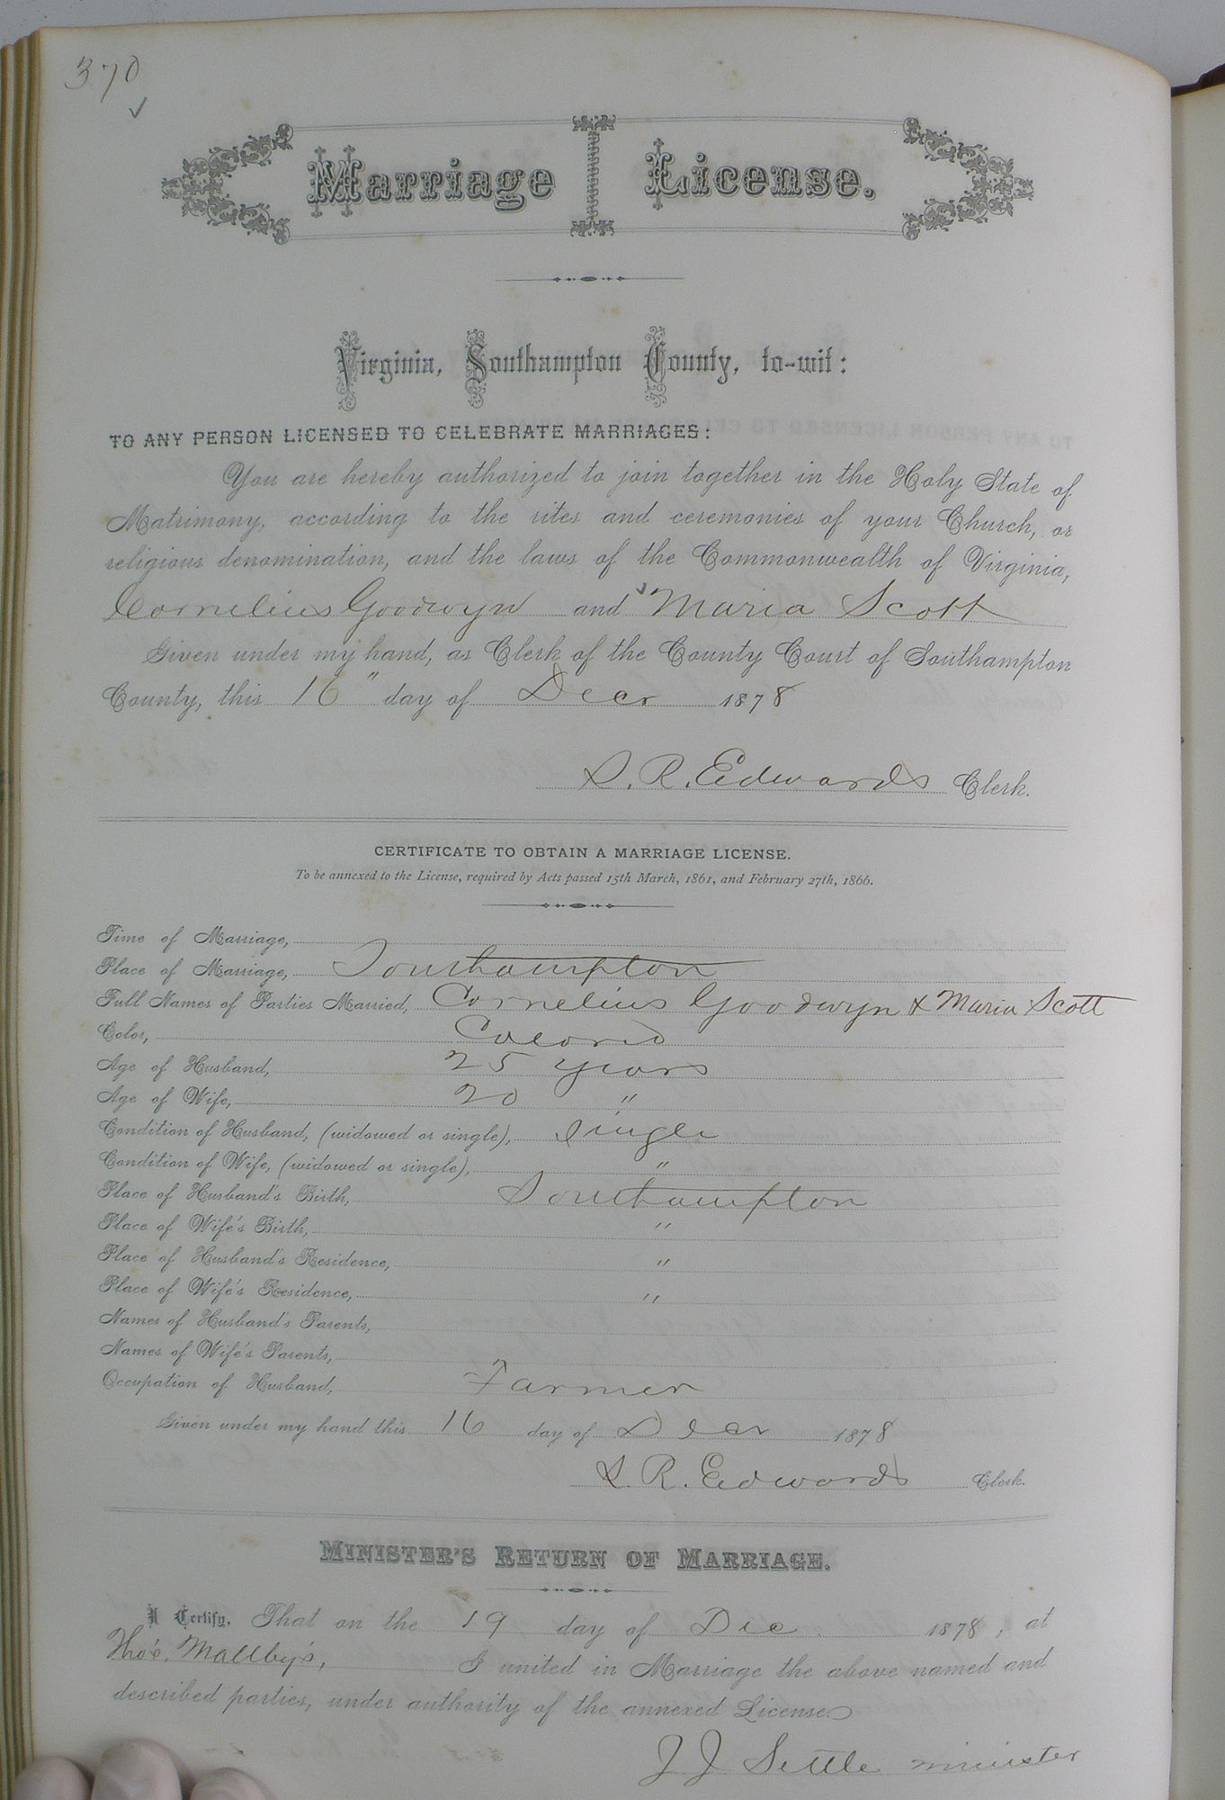 370
Marriage License.
Virginia, Southampton County, to-wit:
TO ANY PERSON LICENSED TO CELEBRATE MARRIAGES:
You are hereby authorized to join together in the Holy State of
Matrimony, according to the rites and ceremonies of your Church, or
religious denomination, and the laws of the Commonwealth of Virginia,
Cornelius Goodwyn and Maria Scott
Given under my hand, as Clerk of the County Court of Southampton
County, this 16" day of Decr 1878
S. R. Edwards Clerk.
CERTIFICATE TO OBTAIN A MARRIAGE LICENSE.
To be annexed to the License, required by Acts passed 15th March, 1861, and February 27th, 1866.
Time of Marriage,
Place of Marriage, Southampton
Full Names of Parties Married, Cornelius Goodwyn & Maria Scott
Color, Colored
Age of Husband, 25 years
Age of Wife, 20 "
Condition of Husband, (widowed or single), Single
Condition of Wife, (widowed or single), "
Place of Husband's Birth, Southampton
Place of Wife's Birth, "
Place of Husband's Residence, "
Place of Wife's Residence, "
Names of Husband's Parents,
Names of Wife's Parents,
Occupation of Husband, Farmer
Given under my hand this 16 day of Decr 1878
S. R. Edwards Clerk.
MINISTER'S RETURN OF MARRIAGE.
I Certify, That on the 19 day of Dec. 1878, at
Tho's. I united in Marriage the above named and
described parties, under authority of the annexed License
J J Settle minister